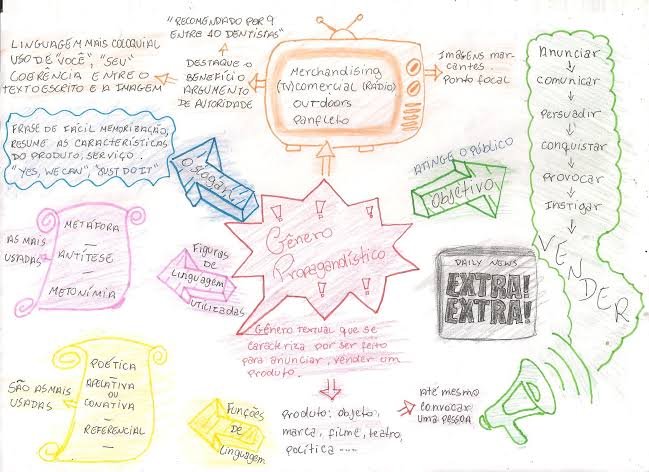 "RECOMENDADO POR 9
ENTRE 10 DENTISTAS"
LINGUAGEM MAIS COLOQUIAL
USO DE "VOCÊ", "SEU"
COERÊNCIA ENTRE O
TEXTO ESCRITO E A IMAGEM
DESTAQUE O
BENEFÍCIO
ARGUMENTO
DE AUTORIDADE
Merchandising
(TV) comercial (RÁDIO)
OUTDOORS
PANFLETO
IMAGENS MAR-
CANTES...
PONTO FOCAL
Anunciar
comunicar
Persuadir
conquistar
Provocar
Instigar
VENDER
FRASE DE FÁCIL MEMORIZAÇÃO,
RESUME AS CARACTERÍSTICAS
DO PRODUTO, SERVIÇO.
"YES, WE CAN", "JUST DO IT"
O Slogan
ATINGE O PÚBLICO
Objetivo
Gênero
Propagandístico
METÁFORA
ANTÍTESE
METONÍMIA
AS MAIS
USADAS
Figuras
de
Linguagem
UTILIZADAS
DAILY NEWS
EXTRA!
EXTRA!
Gênero textual que se
caracteriza por ser feito
para anunciar, vender um
produto.
POÉTICA
APELATIVA
OU
CONATIVA
REFERENCIAL
SÃO AS MAIS
USADAS
Funções
de
Linguagem
Produto: objeto,
marca, filme, teatro,
política ...
ATÉ MESMO
CONVOCAR
UMA PESSOA